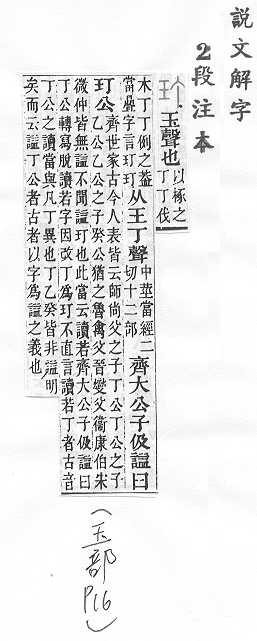 說文解字
2段注本
玎 玉聲也 以椓之
丁丁伐
木丁丁例之葢
當疊字言玎玎
从王丁聲 中莖當經二
切十一部
齊大公子伋謚曰
玎公 齊世家古今人表皆云師尚父之子丁公丁公之子
乙公乙公之子癸公猶之魯禽父晉燮父衞康伯宋
微仲皆無謚不聞謚玎也此當云讀若齊大公子伋謚曰
丁公轉寫脫讀若字因改丁爲玎不直言讀若丁者古音
丁公之讀當與凡丁異也丁乙癸皆非謚明
矣而云謚丁公者古者以字爲謚之義也
(玉部 P16)